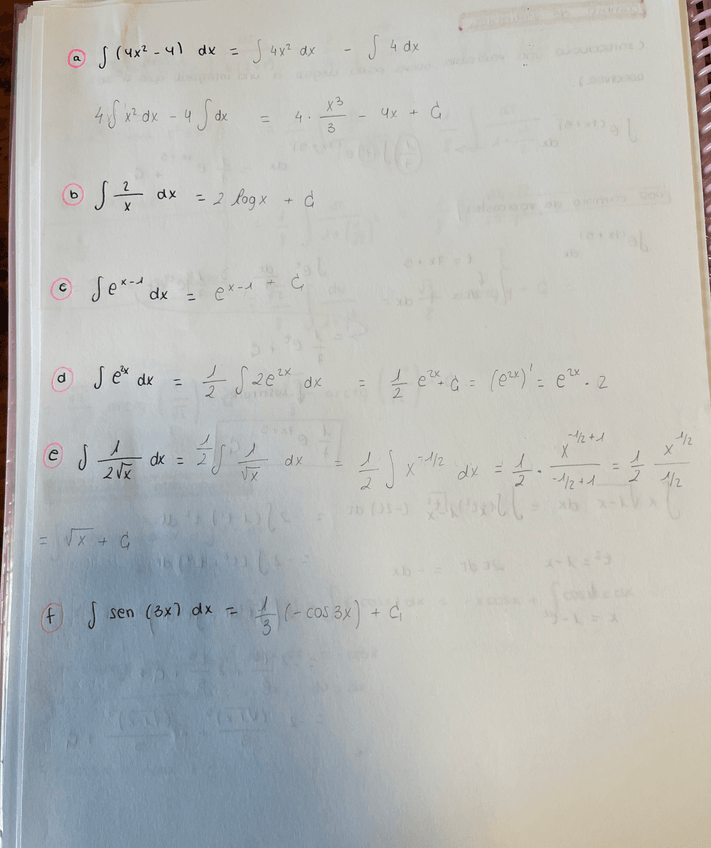 a ∫ (4x² - 4) dx = ∫ 4x² dx - ∫ 4 dx
4 ∫ x² dx - 4 ∫ dx = 4 · x³/3 - 4x + C
b ∫ 2/x dx = 2 log x + C
c ∫ e^(x-1) dx = e^(x-1) + C
d ∫ e^(2x) dx = 1/2 ∫ 2e^(2x) dx = 1/2 e^(2x) + C = (e^(2x))' = e^(2x) · 2
e ∫ 1/(2√x) dx = 1/2 ∫ 1/√x dx = 1/2 ∫ x^(-1/2) dx = 1/2 · x^(-1/2+1)/(-1/2+1) = 1/2 x^(1/2)/(1/2)
= √x + C
f ∫ sen (3x) dx = 1/3 (-cos 3x) + C